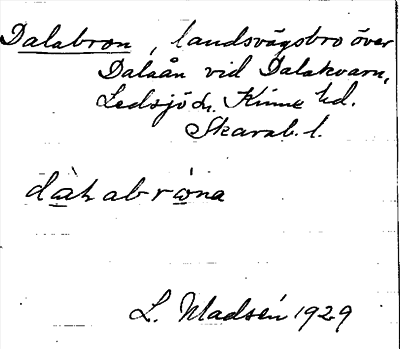 Dalabron, landsvägsbro över
Dalaån vid Dalakvarn,
Ledsjö s. Kinne hd.
Skarab. l.
L. Madsén 1929